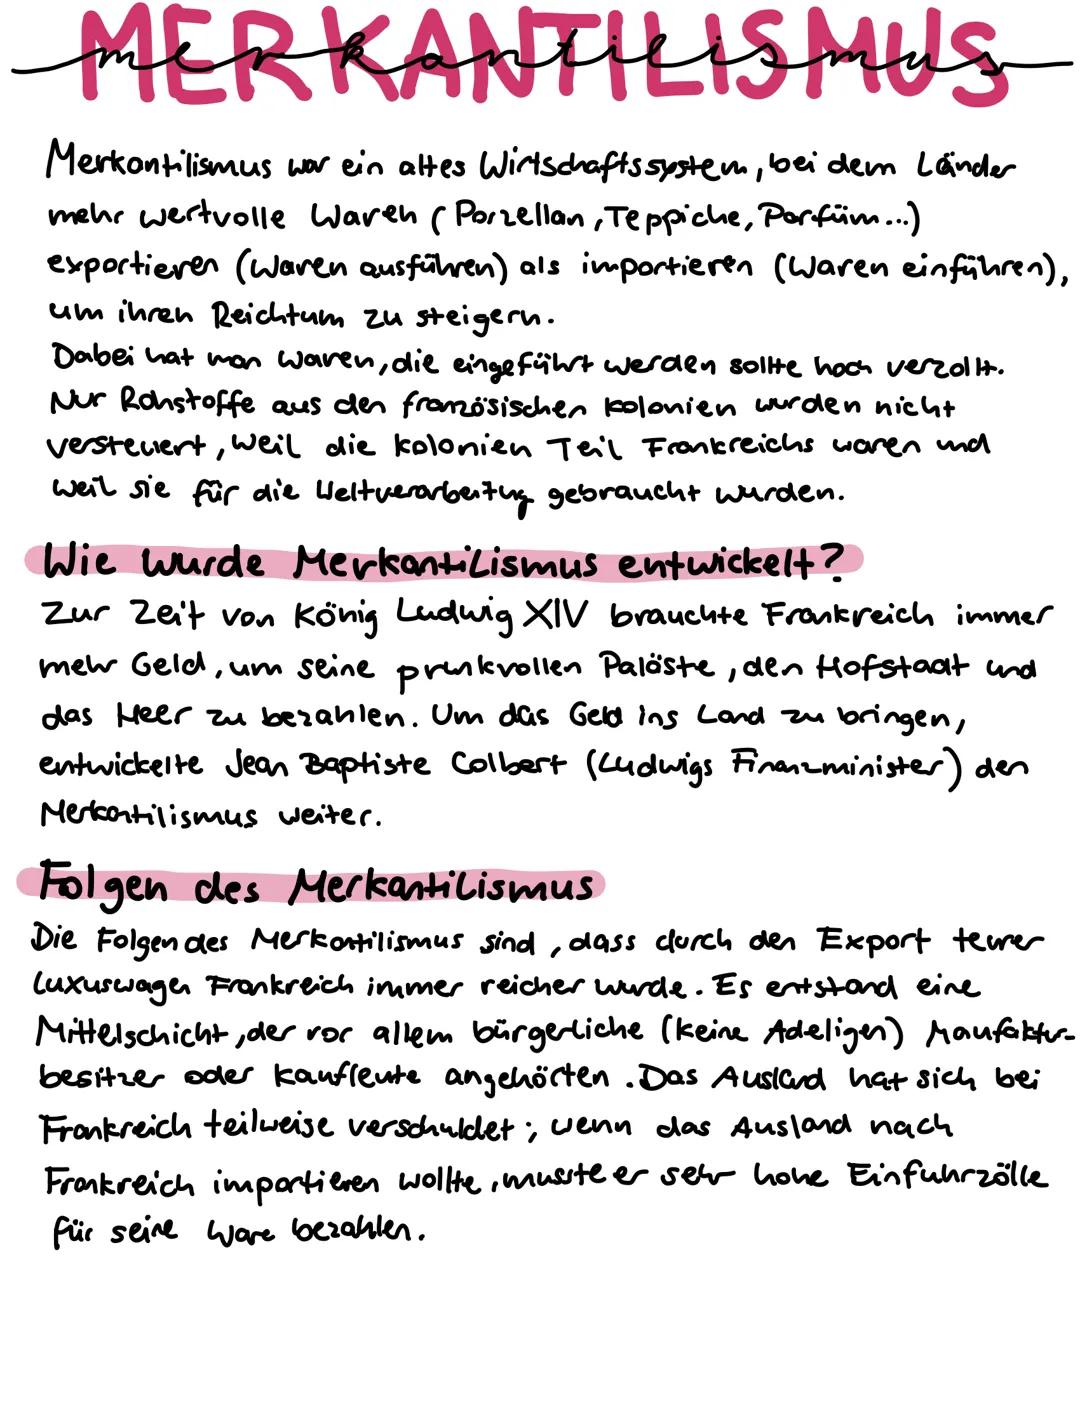 MERKANTILISMUS
merkantilismus
Merkantilismus war ein altes Wirtschaftssystem, bei dem Länder
mehr wertvolle Waren (Porzellan, Teppiche, Parfüm...)
exportieren (Waren ausführen) als importieren (Waren einführen),
um ihren Reichtum zu steigern.
Dabei hat man Waren, die eingeführt werden sollte hoch verzollt.
Nur Rohstoffe aus den französischen Kolonien wurden nicht
versteuert, weil die Kolonien Teil Frankreichs waren und
weil sie für die gebraucht wurden.
Wie wurde Merkantilismus entwickelt?
Zur Zeit von König Ludwig XIV brauchte Frankreich immer
mehr Geld, um seine prunkvollen Paläste, den Hofstaat und
das Heer zu bezahlen. Um das Geld ins Land zu bringen,
entwickelte Jean Baptiste Colbert (Ludwigs Finanzminister) den
Merkantilismus weiter.
Folgen des Merkantilismus
Die Folgen des Merkantilismus sind, dass durch den Export teurer
Luxuswagen Frankreich immer reicher wurde. Es entstand eine
Mittelschicht, der vor allem bürgerliche (keine Adeligen) Manufaktur-
besitzer oder Kaufleute angehörten. Das Ausland hat sich bei
Frankreich teilweise verschuldet; wenn das Ausland nach
Frankreich importieren wollte, musste er sehr hohe Einfuhrzölle
für seine Ware bezahlen.